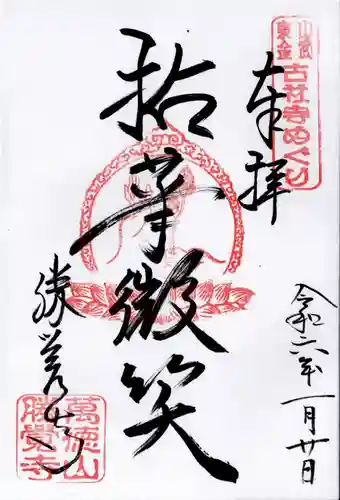 山武
東金
古社寺めぐり
奉拝
拈華微笑
令和六年一月廿日
勝覚寺
萬徳山
勝覺寺